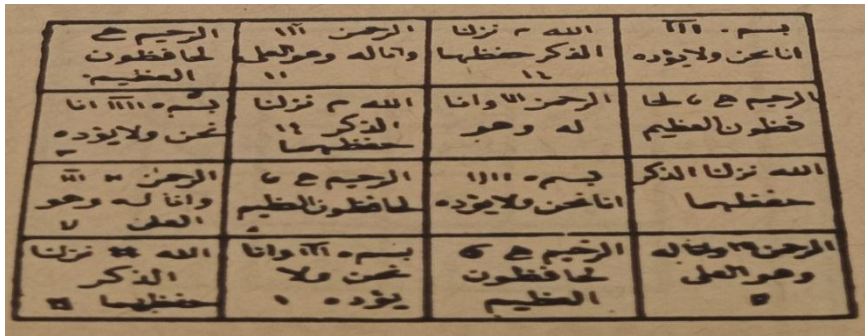 بسم
انا نحن ولا يؤده
الله م نزلنا
الذكر حفظهما
١٤
الرحمن ااا
وانا له وهو العلى
١١
الرحيم ح
لحافظون
العظيم
الرحيم ح لحا
فظون العظيم
الرحمن وانا
له وهو
الله م نزلنا
الذكر ١٤
حفظهما
بسم انا
نحن ولا يؤده
الله نزلنا الذكر
حفظهما
بسم
انا نحن ولا يؤده
الرحيم ح
لحافظون العظيم
الرحمن
وانا له وهو
العلى ٧
الرحمن وانا له
وهو العلى
الرحيم ح ٦
لحافظون
العظيم
بسم وانا
نحن ولا
يؤده ١
الله نزلنا
الذكر
حفظهما